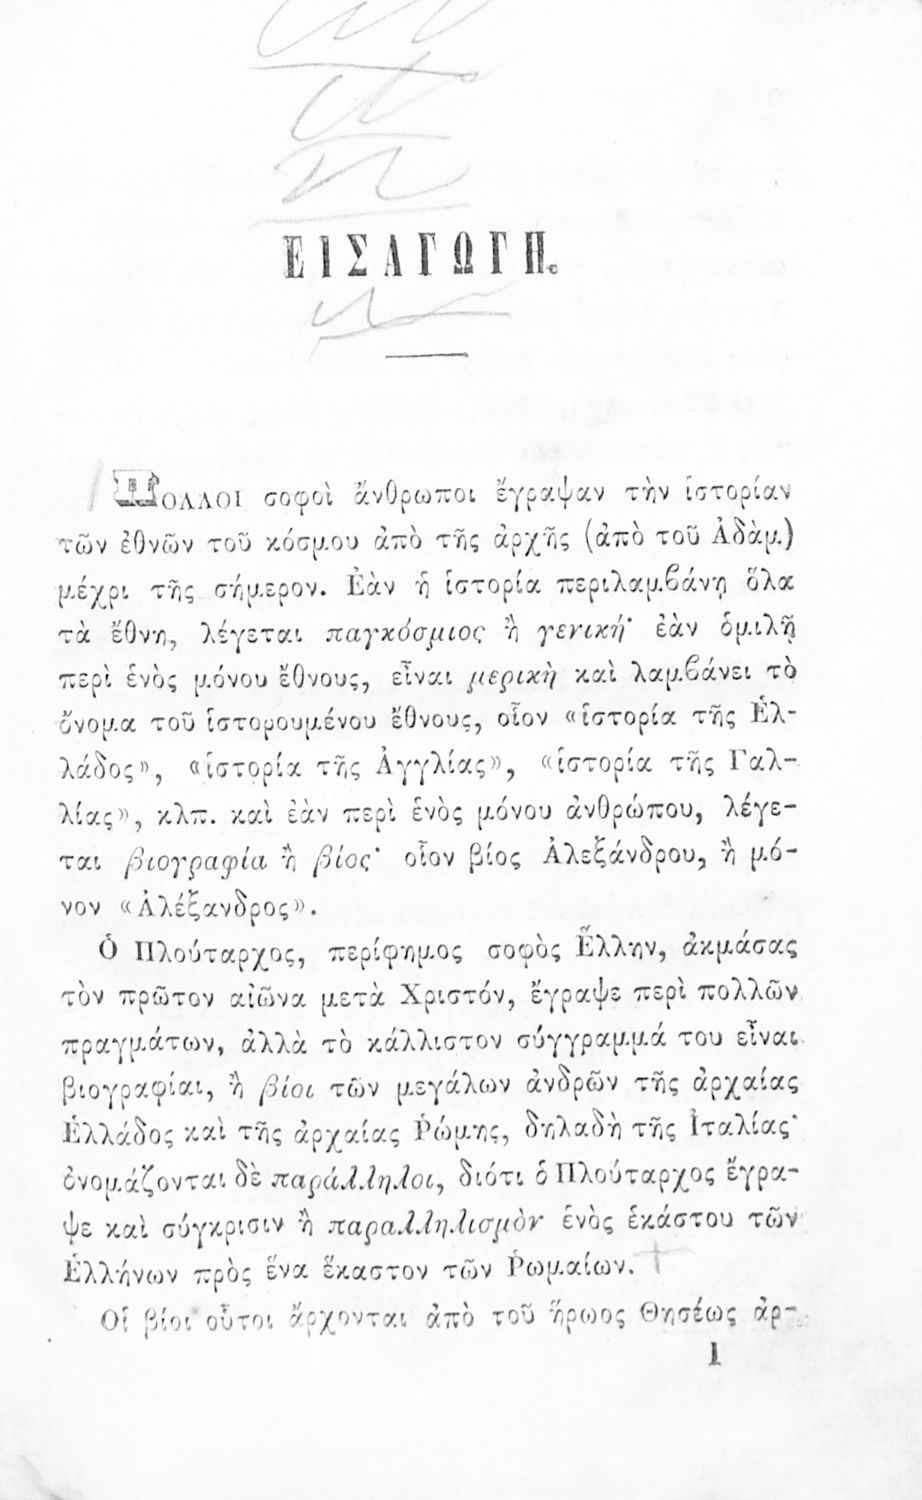 ΕΙΣΑΓΩΓΗ.
ΠΟΛΛΟΙ σοφοὶ ἄνθρωποι ἔγραψαν τὴν ἱστορίαν
τῶν ἐθνῶν τοῦ κόσμου ἀπὸ τῆς ἀρχῆς (ἀπὸ τοῦ Ἀδὰμ)
μέχρι τῆς σήμερον. Ἐὰν ἡ ἱστορία περιλαμβάνῃ ὅλα
τὰ ἔθνη, λέγεται παγκόσμιος ἢ γενική· ἐὰν ὁμιλῇ
περὶ ἑνὸς μόνου ἔθνους, εἶναι μερικὴ καὶ λαμβάνει τὸ
ὄνομα τοῦ ἱστορουμένου ἔθνους, οἷον «ἱστορία τῆς Ἑλ-
λάδος», «ἱστορία τῆς Ἀγγλίας», «ἱστορία τῆς Γαλ-
λίας», κλπ. καὶ ἐὰν περὶ ἑνὸς μόνου ἀνθρώπου, λέγε-
ται βιογραφία ἢ βίος· οἷον βίος Ἀλεξάνδρου, ἢ μό-
νον «Ἀλέξανδρος».
Ὁ Πλούταρχος, περίφημος σοφὸς Ἕλλην, ἀκμάσας
τὸν πρῶτον αἰῶνα μετὰ Χριστόν, ἔγραψε περὶ πολλῶν
πραγμάτων, ἀλλὰ τὸ κάλλιστον σύγγραμμά του εἶναι
βιογραφίαι, ἢ βίοι τῶν μεγάλων ἀνδρῶν τῆς ἀρχαίας
Ἑλλάδος καὶ τῆς ἀρχαίας Ῥώμης, δηλαδὴ τῆς Ἰταλίας·
ὀνομάζονται δὲ παράλληλοι, διότι ὁ Πλούταρχος ἔγρα-
ψε καὶ σύγκρισιν ἢ παραλληλισμὸν ἑνὸς ἑκάστου τῶν
Ἑλλήνων πρὸς ἕνα ἕκαστον τῶν Ῥωμαίων.
Οἱ βίοι οὗτοι ἄρχονται ἀπὸ τοῦ ἥρωος Θησέως ἀρ-
1